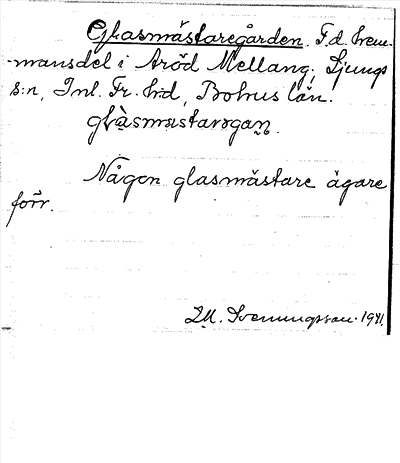 Glasmästaregården. F.d. hem-
mansdel i Aröd Mellang, Ljungs
s:n, Inl. Fr. h:d, Bohus län.
glàsmastarogan.
Någon glasmästare ägare
förr.
M. Svenungsson. 1941.